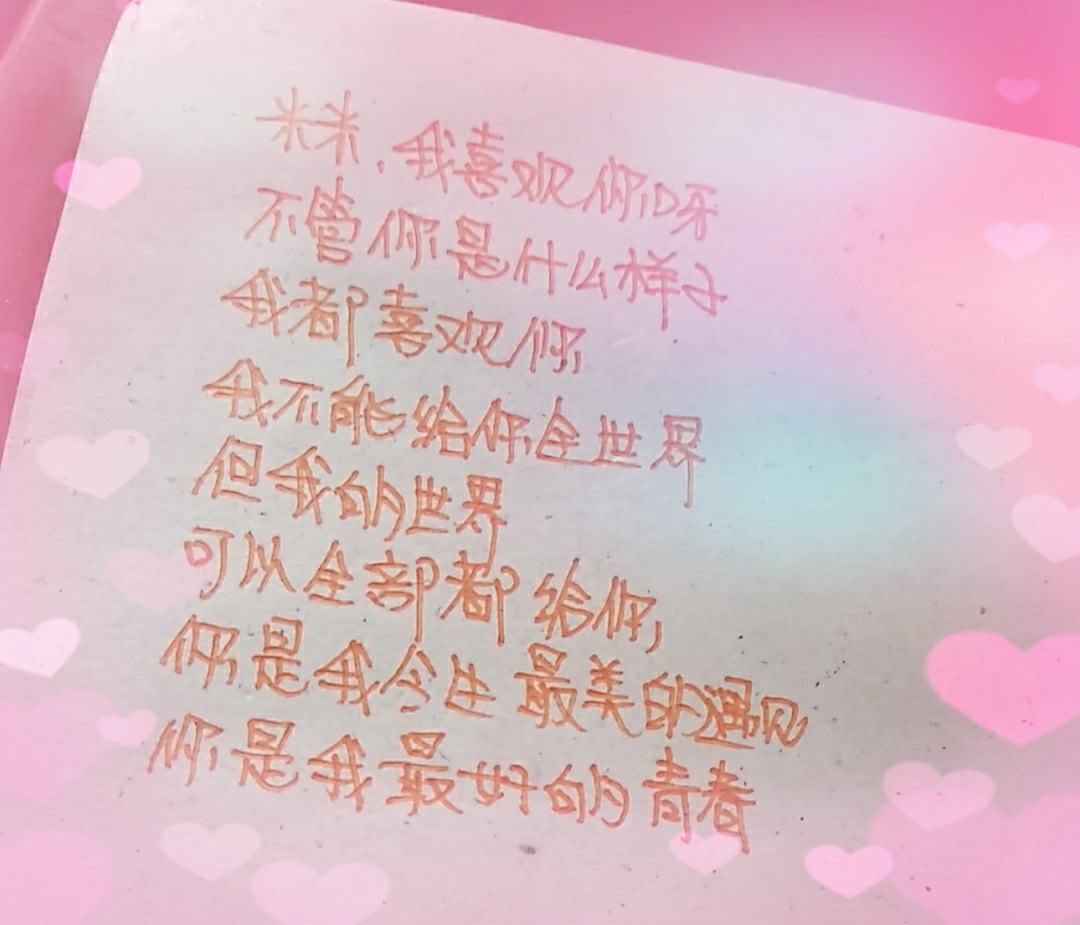 米米，我喜欢你呀
不管你是什么样子
我都喜欢你
我不能给你全世界
但我的世界
可以全部都给你，
你是我今生最美的遇见
你是我最好的青春